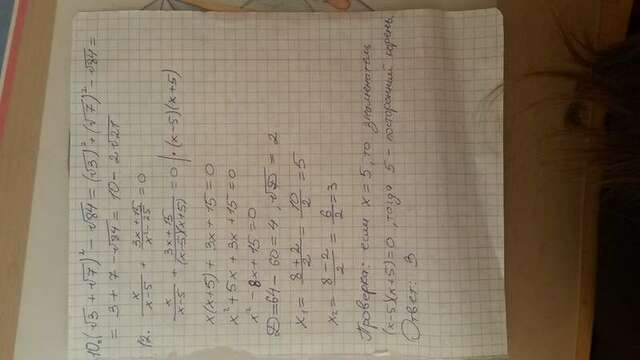 10. (√3 + √7)² - √84 = (√3)² + (√7)² - √84 =
= 3 + 7 - √84 = 10 - 2√21
12. x/(x-5) + (3x+15)/(x²-25) = 0
x/(x-5) + (3x+15)/((x-5)(x+5)) = 0 | ·(x-5)(x+5)
x(x+5) + 3x + 15 = 0
x² + 5x + 3x + 15 = 0
x² - 8x + 15 = 0
D = 64 - 60 = 4, √D = 2
x₁ = (8+2)/2 = 10/2 = 5
x₂ = (8-2)/2 = 6/2 = 3
Проверка: если x = 5, то знаменатель
(x-5)(x+5) = 0, тогда 5 - посторонний корень.
Ответ: 3